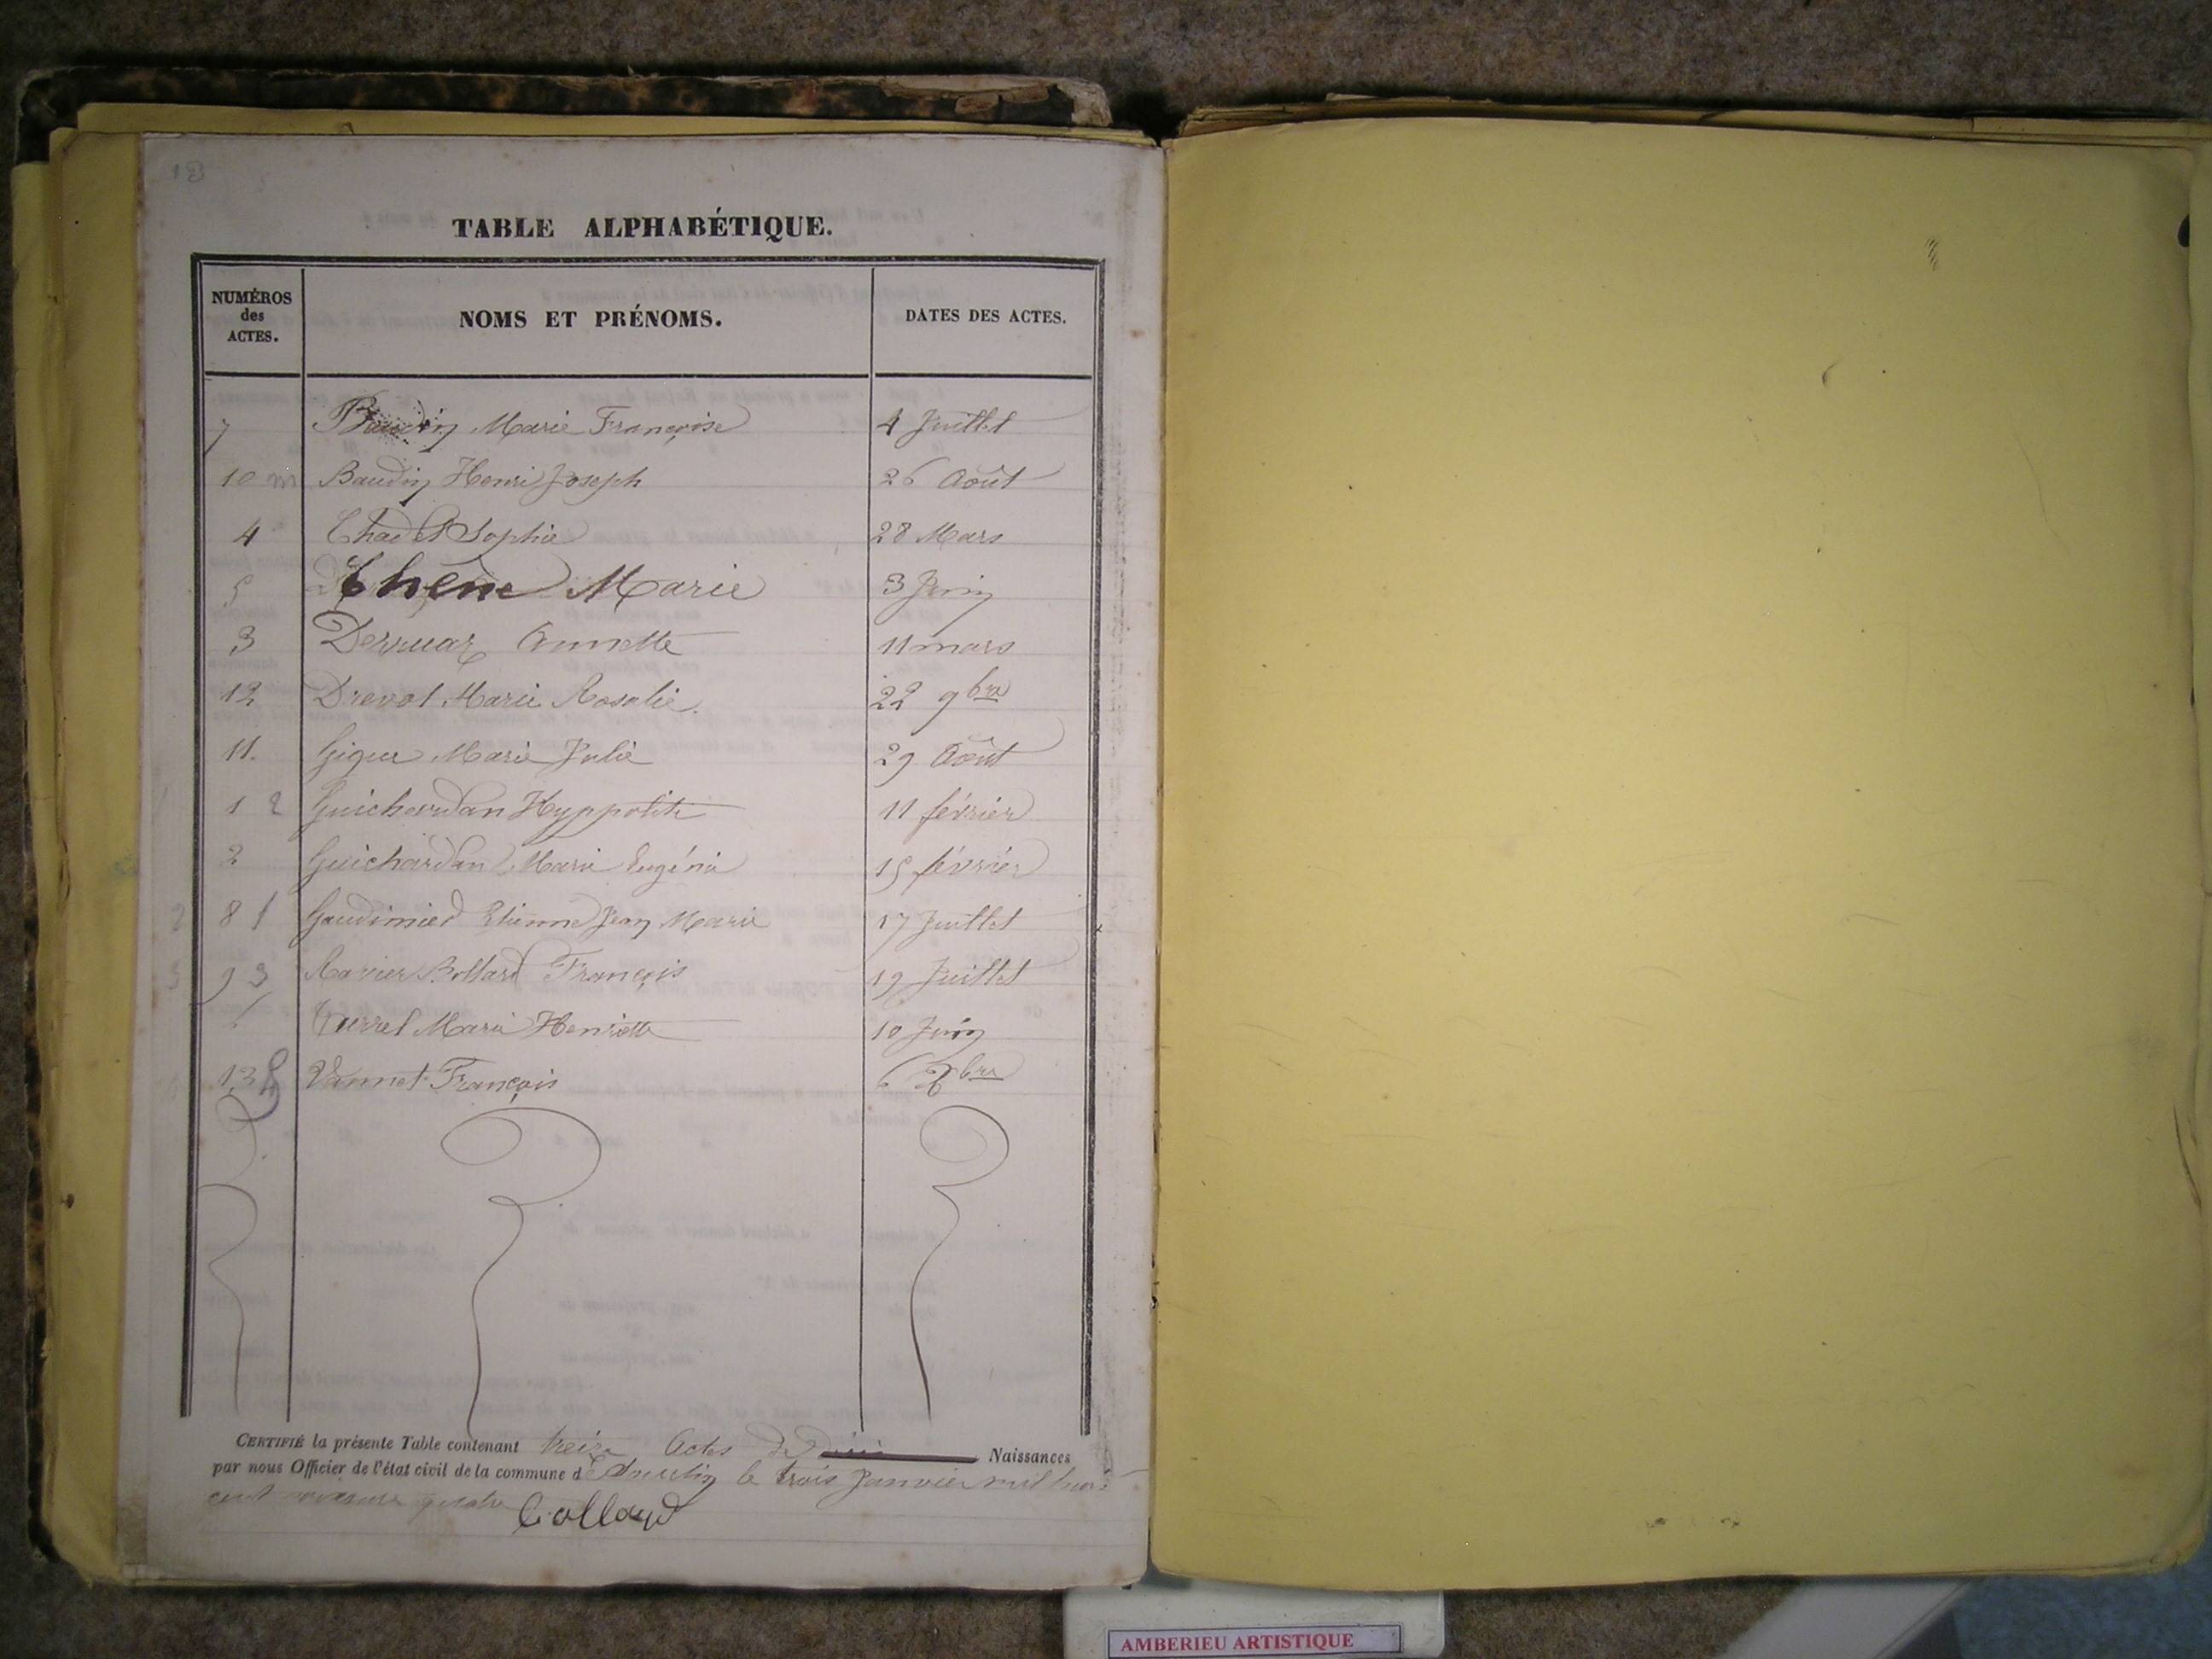 TABLE ALPHABÉTIQUE.
NUMÉROS des ACTES.
NOMS ET PRÉNOMS.
DATES DES ACTES.
7 Baudin Marie Françoise 4 Juillet
10 Baudin Henri Joseph 26 Août
4 Sophie 28 Mars
5 Chêne Marie 3 Juin
3 Derruaz Annette 11 mars
12 Drevot Marie Rosalie. 22 9bre
11. Marie Julie 29 Août
1 2 Guichardan Hyppolite 11 février
2 Guichardan Marie Eugénie 15 février
8 1 Gaudimied Etienne Jean Marie 17 Juillet
9 3 Ravier Bollard François 19 Juillet
Marie Henriette 10 Juin
13 Vannet François 6 Xbre
CERTIFIÉ la présente Table contenant treize Actes de Naissances
par nous Officier de l'état civil de la commune d le trois Janvier mil huit
cent quatre
AMBERIEU ARTISTIQUE